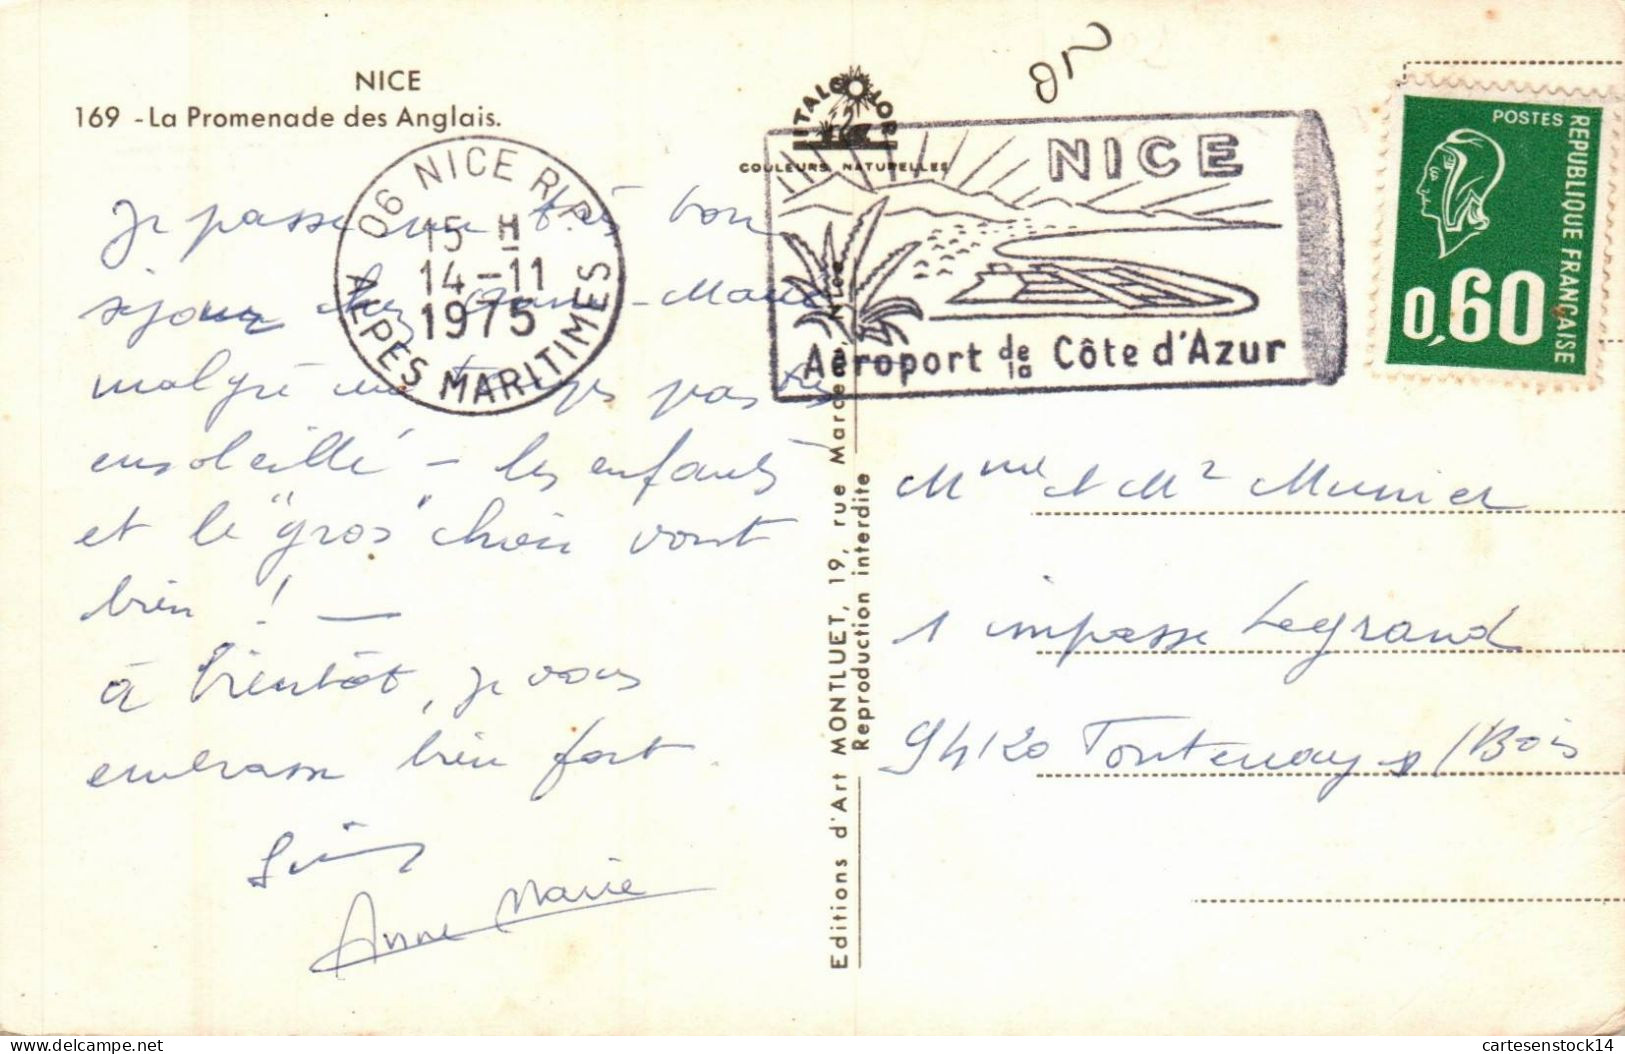 NICE
169 - La Promenade des Anglais.
ITALCOLOR
COULEURS NATURELLES
06 NICE R.P.
15 H
14-11
1975
ALPES MARITIMES
NICE
Aéroport de la Côte d'Azur
POSTES
REPUBLIQUE FRANÇAISE
0,60
Je passe un très bon
séjour chez Anne-Marie
malgré un temps pas très
ensoleillé - les enfants
et le "gros" chien vont
bien ! -
à bientôt, je vous
embrasse bien fort.
Anne Marie
Editions d'Art MONTLUET, 19, rue Marce
Reproduction interdite
Mme & Mr Munier
1 impasse Legrand
94120 Fontenay s/Bois
delcampe.net
cartesenstock14